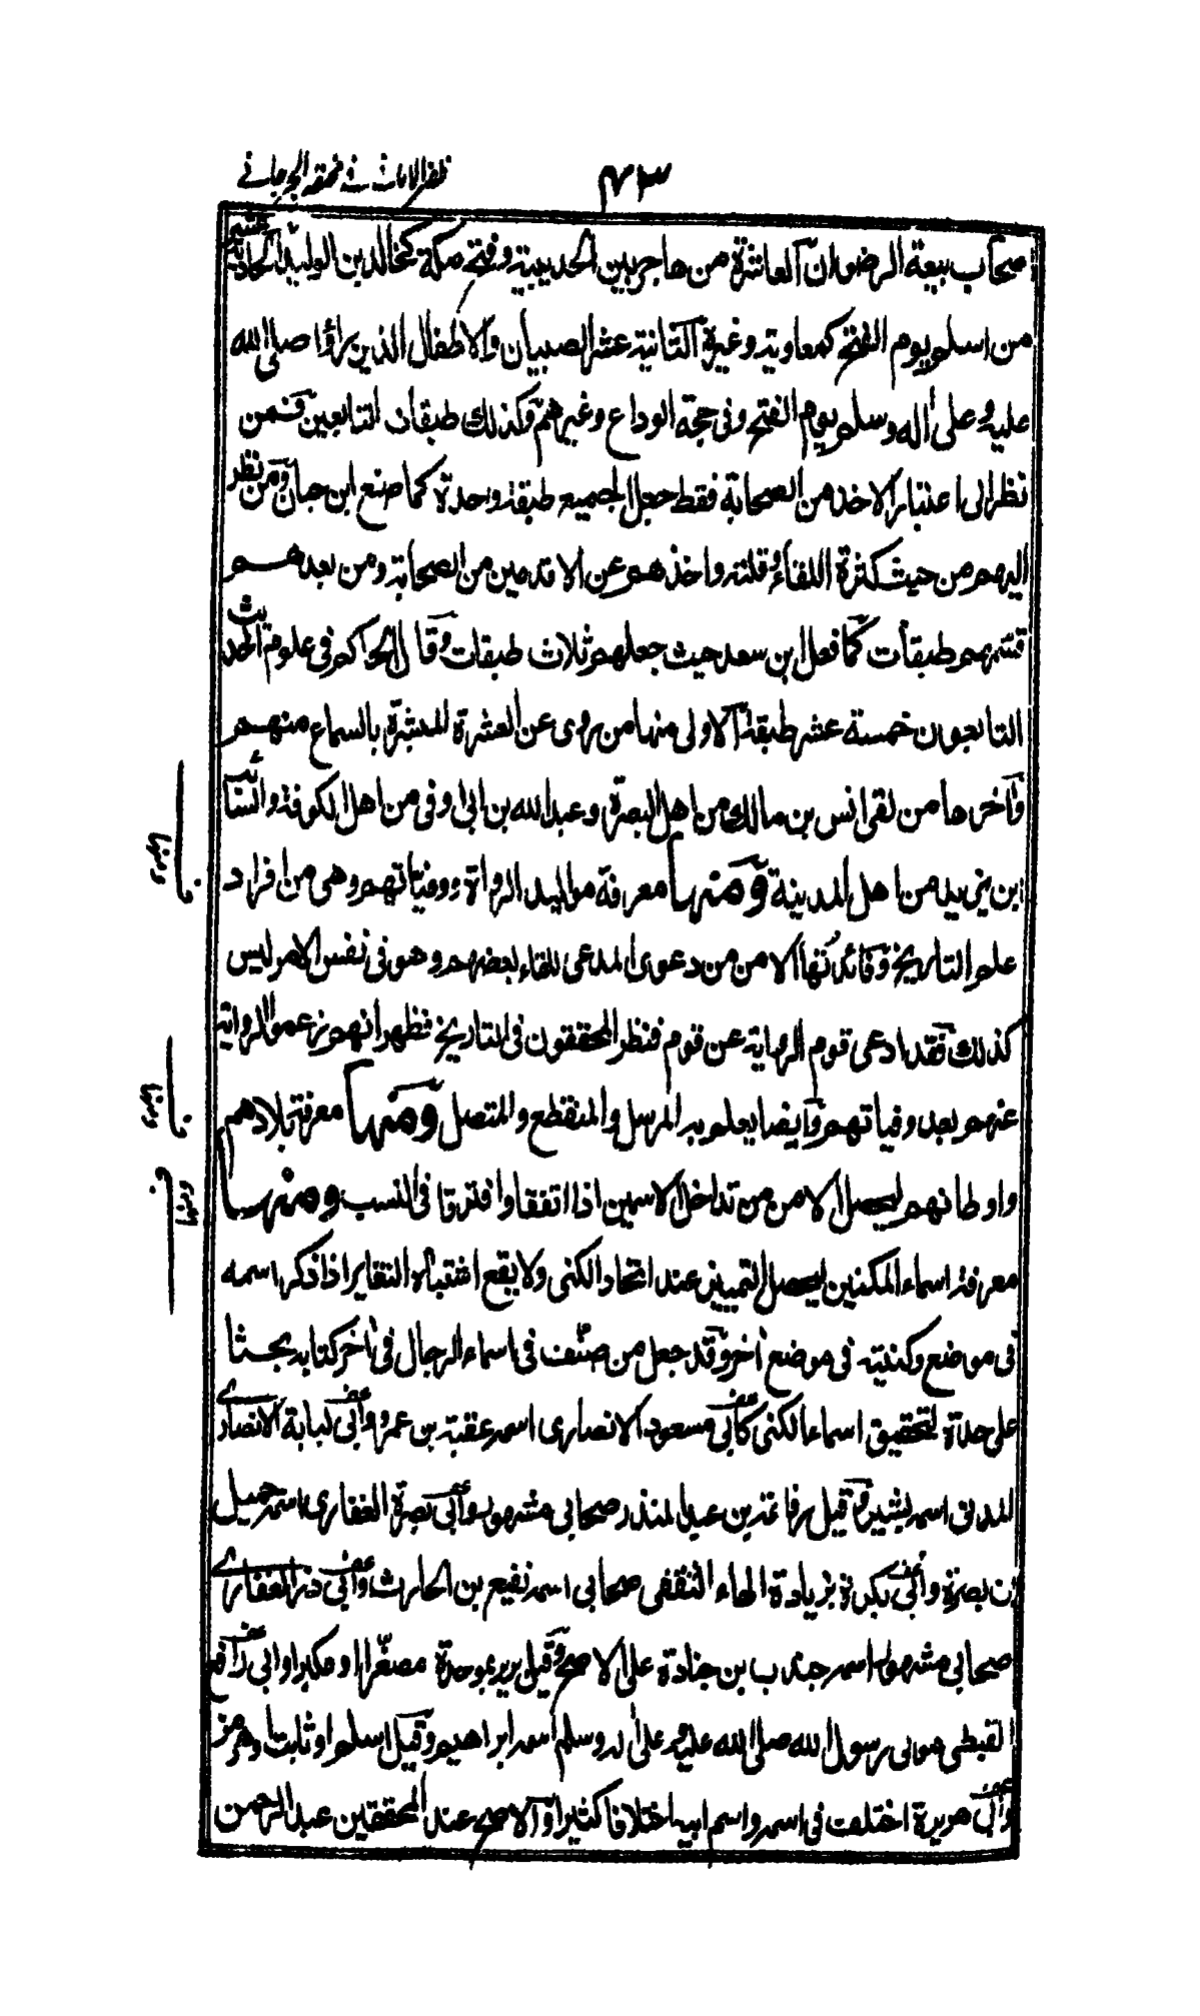 ٤٣
ظفر الامانی فی مختصر الجرجانی
صحاب بيعة الرضوان العاشرة من هاجر بين الحديبية وفتح مكة كخالد بن الوليد الحادية عشر
من اسلم يوم الفتح كمعاوية وغيره الثانية عشر الصبيان والاطفال الذين راؤا صلى الله
عليه وعلى آله وسلم يوم الفتح وفى حجة الوداع وغيرهم وكذلك طبقات التابعين فمن
نظر الى اعتبار الاخذ من الصحابة فقط جعل الجميع طبقة واحدة كما صنع ابن حبان ومن نظر
اليهم من حيث كثرة اللقاء وقلته واخذهم عن الاقدمين من الصحابة ومن بعدهم
قسمهم طبقات كما فعل ابن سعد حيث جعلهم ثلاث طبقات وقال الحاكم فى علوم الحديث
التابعون خمسة عشر طبقة الاولى منها من روى عن العشرة المبشرة بالسماع منهم
وآخرها من لقى انس بن مالك من اهل البصرة وعبد الله بن ابى اوفى من اهل الكوفة والسائب
ابن يزيد من اهل المدينة ومنها معرفة مواليد الرواة ووفياتهم وهى من افراد
علم التاريخ وفائدتها الامن من دعوى المدعى للقاء بعضهم وهو فى نفس الامر ليس
كذلك فقد ادعى قوم الرواية عن قوم فنظر المحققون فى التاريخ فظهر انهم زعموا الرواية
عنهم بعد وفياتهم وايضا يعلم به المرسل والمنقطع والمتصل ومنها معرفة بلادهم
واوطانهم ليحصل الامن من تداخل الاسمين اذا اتفقا وافترقا فى النسب ومنها
معرفة اسماء المكنين ليحصل التمييز عند اتحاد الكنى ولا يقع اشتباه التغاير اذا ذكر اسمه
فى موضع وكنيته فى موضع آخر وقد جعل من صنف فى اسماء الرجال فى آخر كتابه بحثا
على حدة لتحقيق اسماء الكنى كأبى مسعود الانصارى اسمه عقبة بن عمرو وأبى لبابة الانصارى
المدنى اسمه بشير وقيل رفاعة بن عبد المنذر صحابى مشهور وأبى بصرة الغفارى اسمه حميل
بن بصرة وأبى بكرة بزيادة الهاء الثقفى صحابى اسمه نفيع بن الحارث وأبى ذر الغفارى
صحابى مشهور اسمه جندب بن جنادة على الاصح وقيل برير بموحدة مصغرا او مكبرا وابى رافع
القبطى مولى رسول الله صلى الله عليه وعلى آله وسلم اسمه ابراهيم وقيل اسلم او ثابت او هرمز
وأبى هريرة اختلف فى اسمه واسم ابيه اختلافا كثيرا والاصح عند المحققين عبد الرحمن
ومنها
ومنها